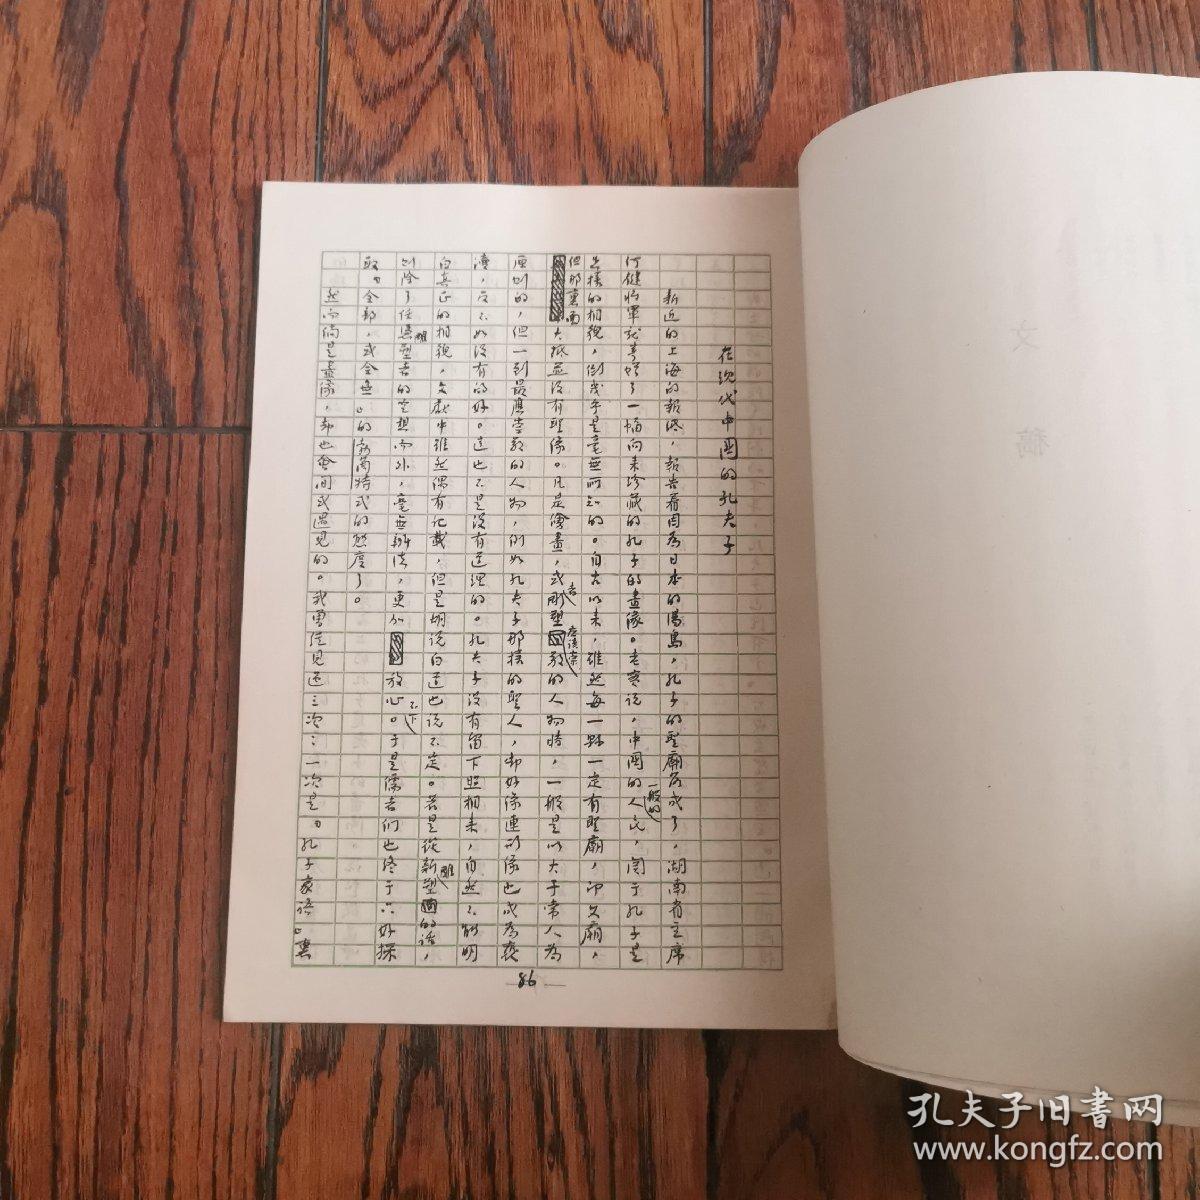 在现代中國的孔夫子
新近的上海的報紙，報告着因為日本的湯島，孔子的聖廟落成了，湖南省主席
何鍵將軍就寄贈了一幅向来珍藏的孔子的畫像。老實说，中國的一般的人民，関于孔子是
怎樣的相貌，倒幾乎是毫無所知的。自古以来，雖然每一縣一定有聖廟，即文廟，
但那裏面大抵並没有聖像。凡是繪畫，或者雕塑應該崇敬的人物時，一般是以大于常人為
原则的，但一到最應崇敬的人物，例如孔夫子那樣的聖人，却好像連形像也成為褻
瀆，反不如没有的好。這也不是没有道理的。孔夫子没有留下照相来，自然不能明
白真正的相貌，文獻中雖然偶有记載，但是胡说白道也说不定。若是從新雕塑的话，
则除了任憑雕塑者的空想而外，毫無辦法，更加放心不下。于是儒者們也终于只好採
取“全部，或全無”的勃蘭特式的態度了。
然而倘是畫像，却也會間或遇見的。我曾經見過三次：一次是“孔子家语”裏
86
文
稿
孔夫子旧書网
www.kongfz.com